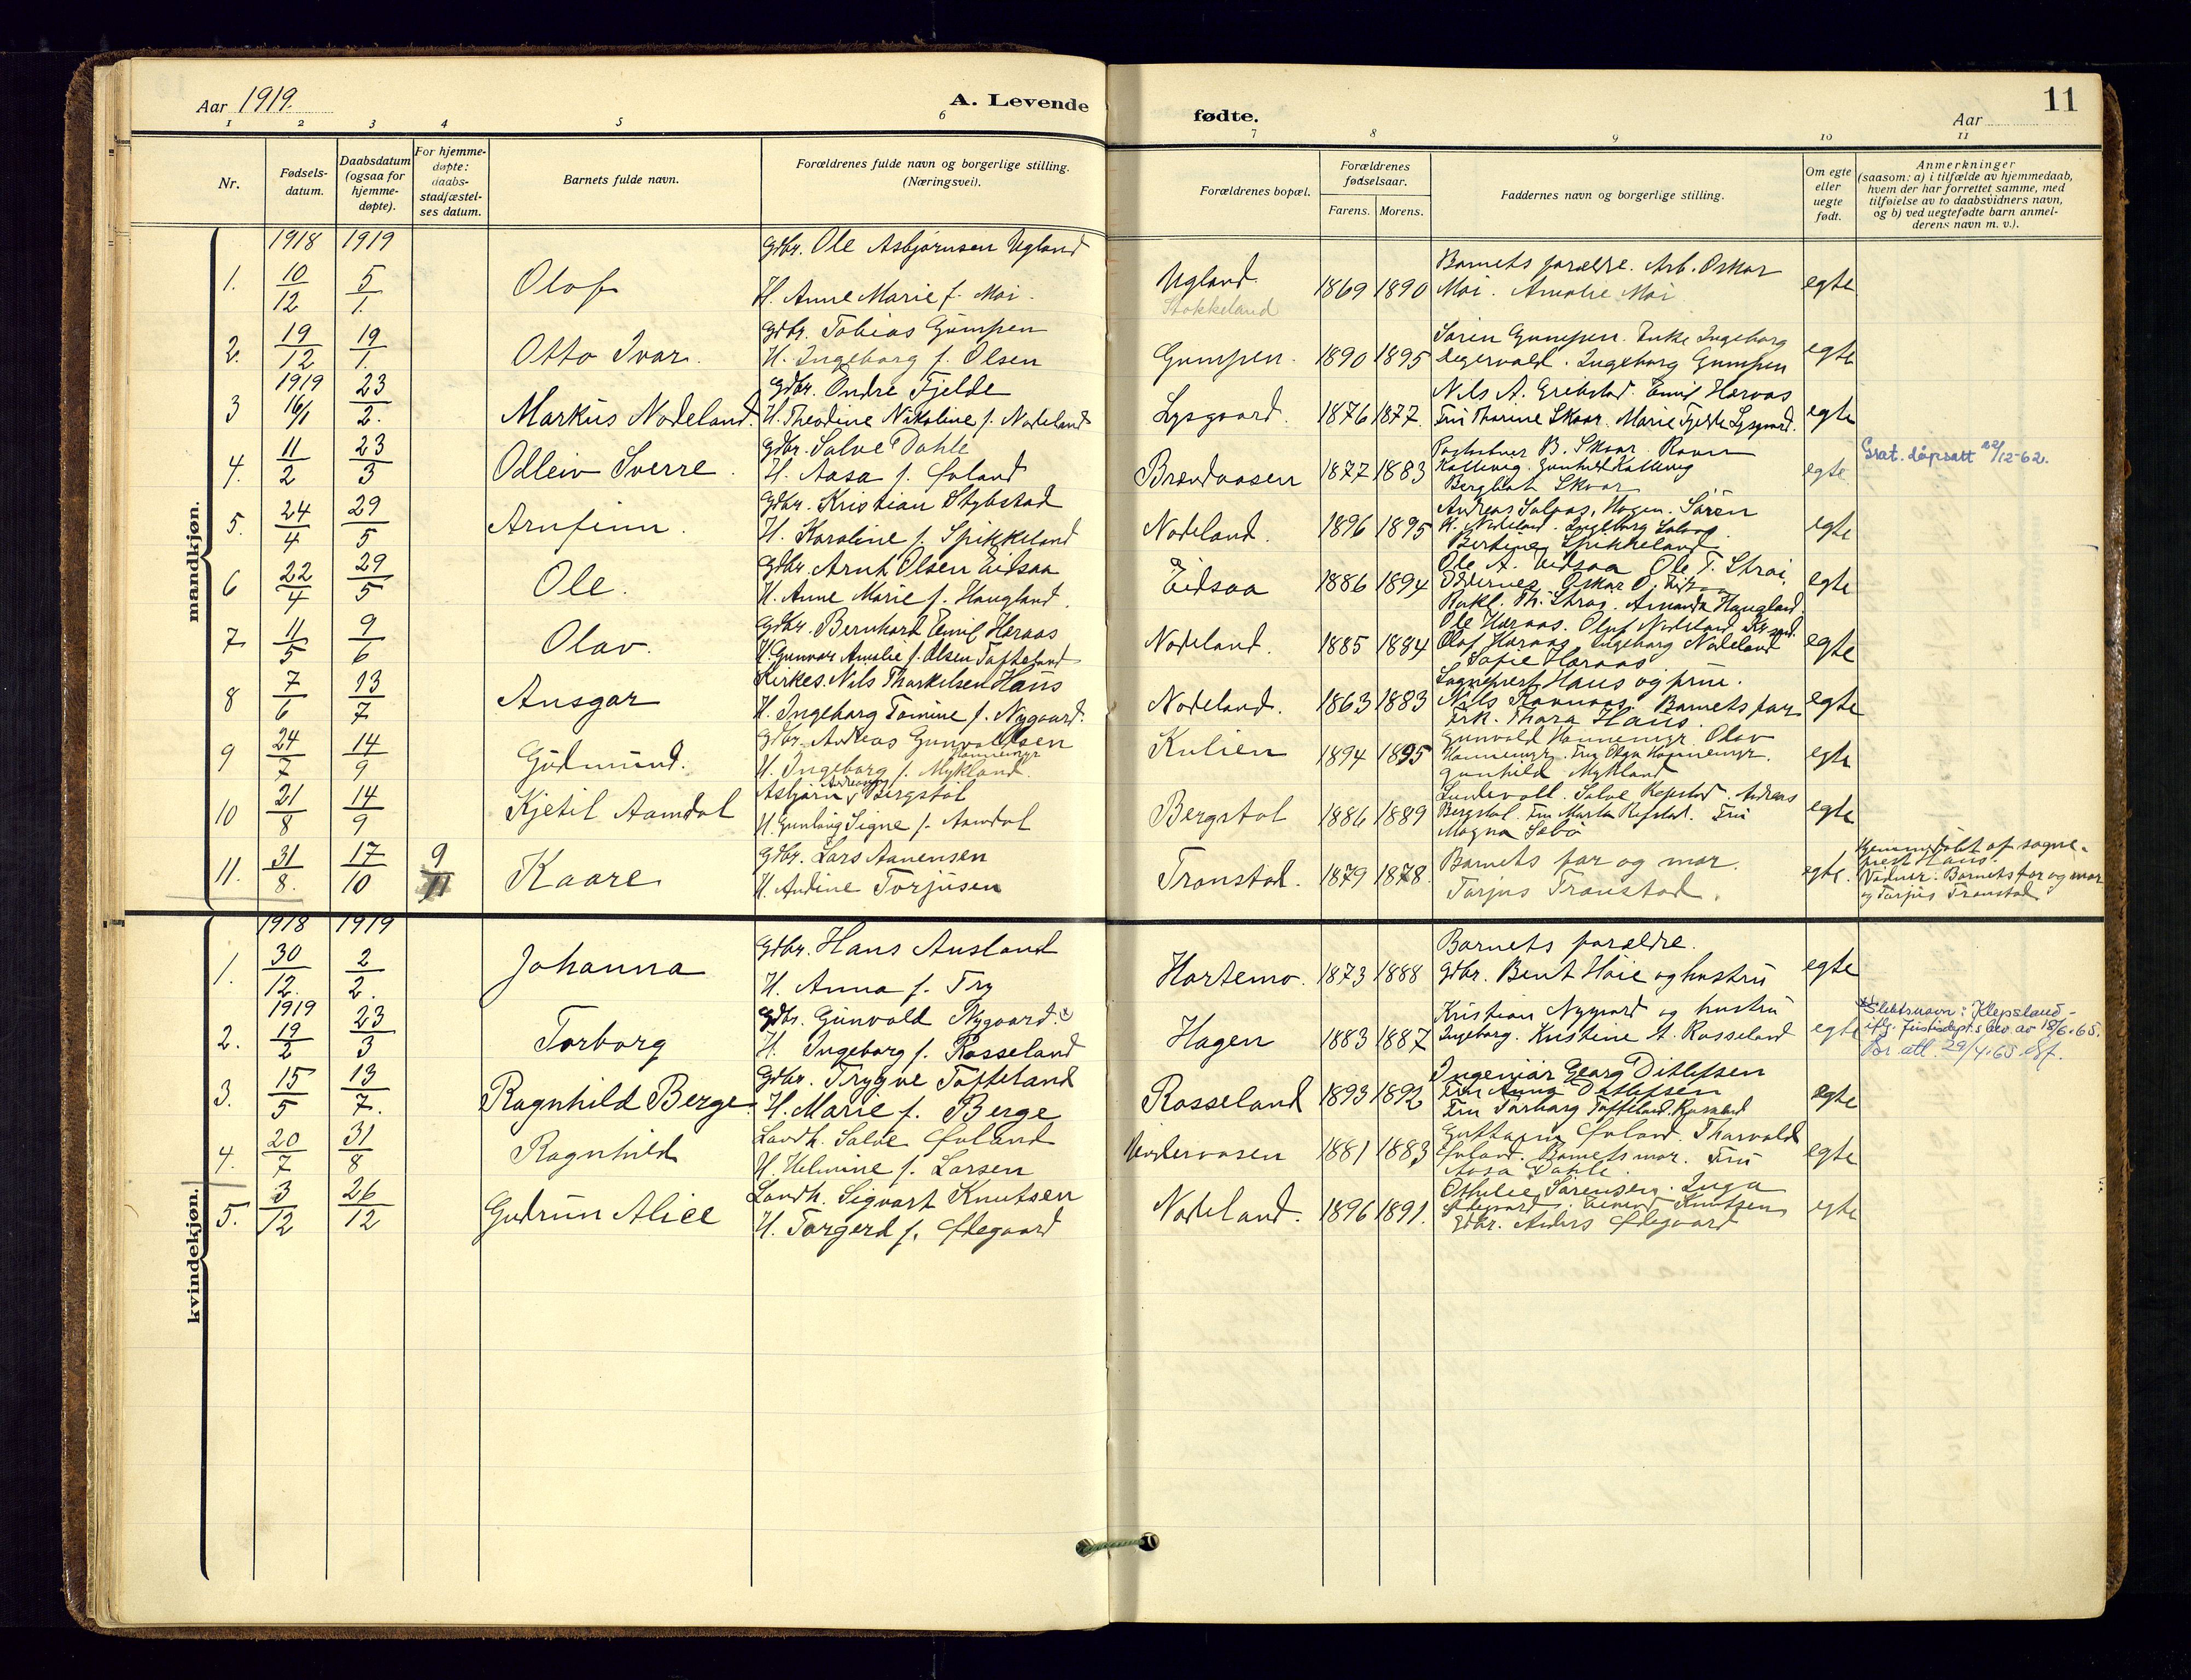 Aar 1919.
A. Levende
fødte.
Aar
11
1 2 3 4 5 6 7 8 9 10 11
Nr.
Fødsels-
datum.
Daabsdatum
(ogsaa for
hjemme-
døpte).
For hjemme-
døpte:
daabs-
stadfæstel-
ses datum.
Barnets fulde navn.
Forældrenes fulde navn og borgerlige stilling.
(Næringsvei).
Forældrenes bopæl.
Forældrenes
fødselsaar.
Farens. Morens.
Faddernes navn og borgerlige stilling.
Om egte
eller
uegte
født.
Anmerkninger
(saasom: a) i tilfælde av hjemmedaab,
hvem der har forrettet samme, med
tilføielse av to daabsvidners navn,
og b) ved uegtefødte barn anmel-
derens navn m. v.).
mandkjøn.
1918 1919
1. 10/12 5/1. Olof
Gdbr. Ole Asbjørnsen Ugland
H. Anne Marie f. Moi.
Ugland.
Stokkeland
1869 1890
Barnets forældre. Arb. Oskar
Moi. Amalie Moi
egte
2. 19/12 19/1. Otto Ivar.
Gdbr. Tobias Gumpen
H. Ingeborg f. Olsen
Gumpen. 1890 1895
Søren Gumpen. Enke Ingeborg
Ingeborg Gumpen
egte
1919
3 16/1 23/2. Markus Nodeland.
Gdbr. Ondre Fjelde
H. Theodine Nikoline f. Nodeland
Lysgaard. 1876 1877.
Nils A. Grebstad. Emil Heraas
Fru Thorine Skaar. Marie Fjelde Lysgaard.
egte
4. 11/2 23/3 Odleiv Sverre.
Gdbr. Salve Dahle
H. Aasa f. Øvland
Brendaasen 1877 1883
B. Skaar.
Kallevig. Gunhild Kallevig
Bergliot Skaar
egte
Grat. dåpsatt 22/12-62.
5. 24/4 29/5 Arnfinn.
Gdbr. Kristian Stybstad
H. Karoline f. Spikkeland
Nodeland. 1896 1895
Andreas Solaas, Hagen. Søren
K. Nodeland. Ingeborg Solaas.
Bertine Spikkeland
egte
6 22/4 29/5 Ole.
Gdbr. Arnt Olsen Eidsaa
H. Anne Marie f. Haugland.
Eidsaa 1886 1894
Ole A. Eidsaa Ole T. Strai,
Oddernes. Oskar O.
Th. Strai. Amanda Haugland.
egte
7 11/5 9/6 Olav.
Gdbr. Bernhard Emil Heraas
H. Gunvor Amalie f. Olsen Tofteland
Nodeland. 1885 1884
Ole Heraas. Oluf Nodeland, Kr.sand.
Olaf Heraas Ingeborg Nodeland
Sofie Heraas
egte
8 7/6 13/7 Ansgar
Kirkes. Nils Thorkelsen Haus
H. Ingeborg Tomine f. Nygaard.
Nodeland. 1863 1883
Sogneprest Haus og frue.
Nils Ravnaas. Barnets far
Frk. Thora Haus.
egte
9 24/7 14/9 Gudmund.
Gdbr. Andreas Gunvaldsen
Honnemyr
H. Ingeborg f. Mykland.
Kulien 1894 1895
Gunvald Honnemyr Olav
Honnemyr. Fru Olga Honnemyr.
Gunhild Mykland
egte
10 21/8 14/9 Kjetil Aamdal
Andreas
Asbjørn v Bergstøl
H. Gunlaug Signe f. Aamdal
Bergstøl 1886 1889
Salve Repstad. Andreas
Bergstøl. Fru Marta Repstad. Fru
Magna Sæbø
egte
11. 31/8. 17/10 9/11 Kaare
Gdbr. Lars Aanensen
H. Andine Torjusen
Tronstad. 1879 1878.
Barnets far og mor.
Tarjus Tronstad.
egte.
Hjemmedøbt af sogne-
prest Haus.
Vidner: Barnets far og mor
og Tarjus Tronstad
kvindekjøn.
1918 1919
1. 30/12. 2/2. Johanna
Gdbr. Hans Ausland
H. Anna f. Try
Hortemo. 1873 1888
Barnets forældre.
Gdbr. Bent Høie og hustru
egte
1919
2. 19/2 23/3 Torborg
Gdbr. Gunvald Nygaard. x)
H. Ingeborg f. Rosseland
Hagen 1883 1887
Kristian Nygaard og hustru
Ingeborg. Kristine A. Rosseland
egte
x) Slektsnavn: Klepsland -
iflg. Justisdept.s bev. av 18/6-65.
Før. att. 29/4.65.
3. 15/5 13/7. Ragnhild Berge.
Gdbr. Trygve Tofteland
H. Marie f. Berge
Rosseland 1893 1892
Ingeniør Georg Ditlefsen
Fru Anna Ditlefsen
Fru Torborg Tofteland. Rosseland
egte
4. 20/7 31/8 Ragnhild
Landh. Salve Øvland
H. Helmine f. Larsen
Undervasen 1881 1883
Øvland. Thorvald
Øvland. Barnets mor. Fru
Aasa Dahle.
egte
5. 3/12 26/12 Gudrun Alice
Landh. Sigvart Knutsen
H. Torgerd f. Ødegaard
Nodeland. 1896 1891.
Othilie Sørensen. Inga
Ødegaard. Eivind Knutsen
Gdbr. Anders Ødegaard
egte